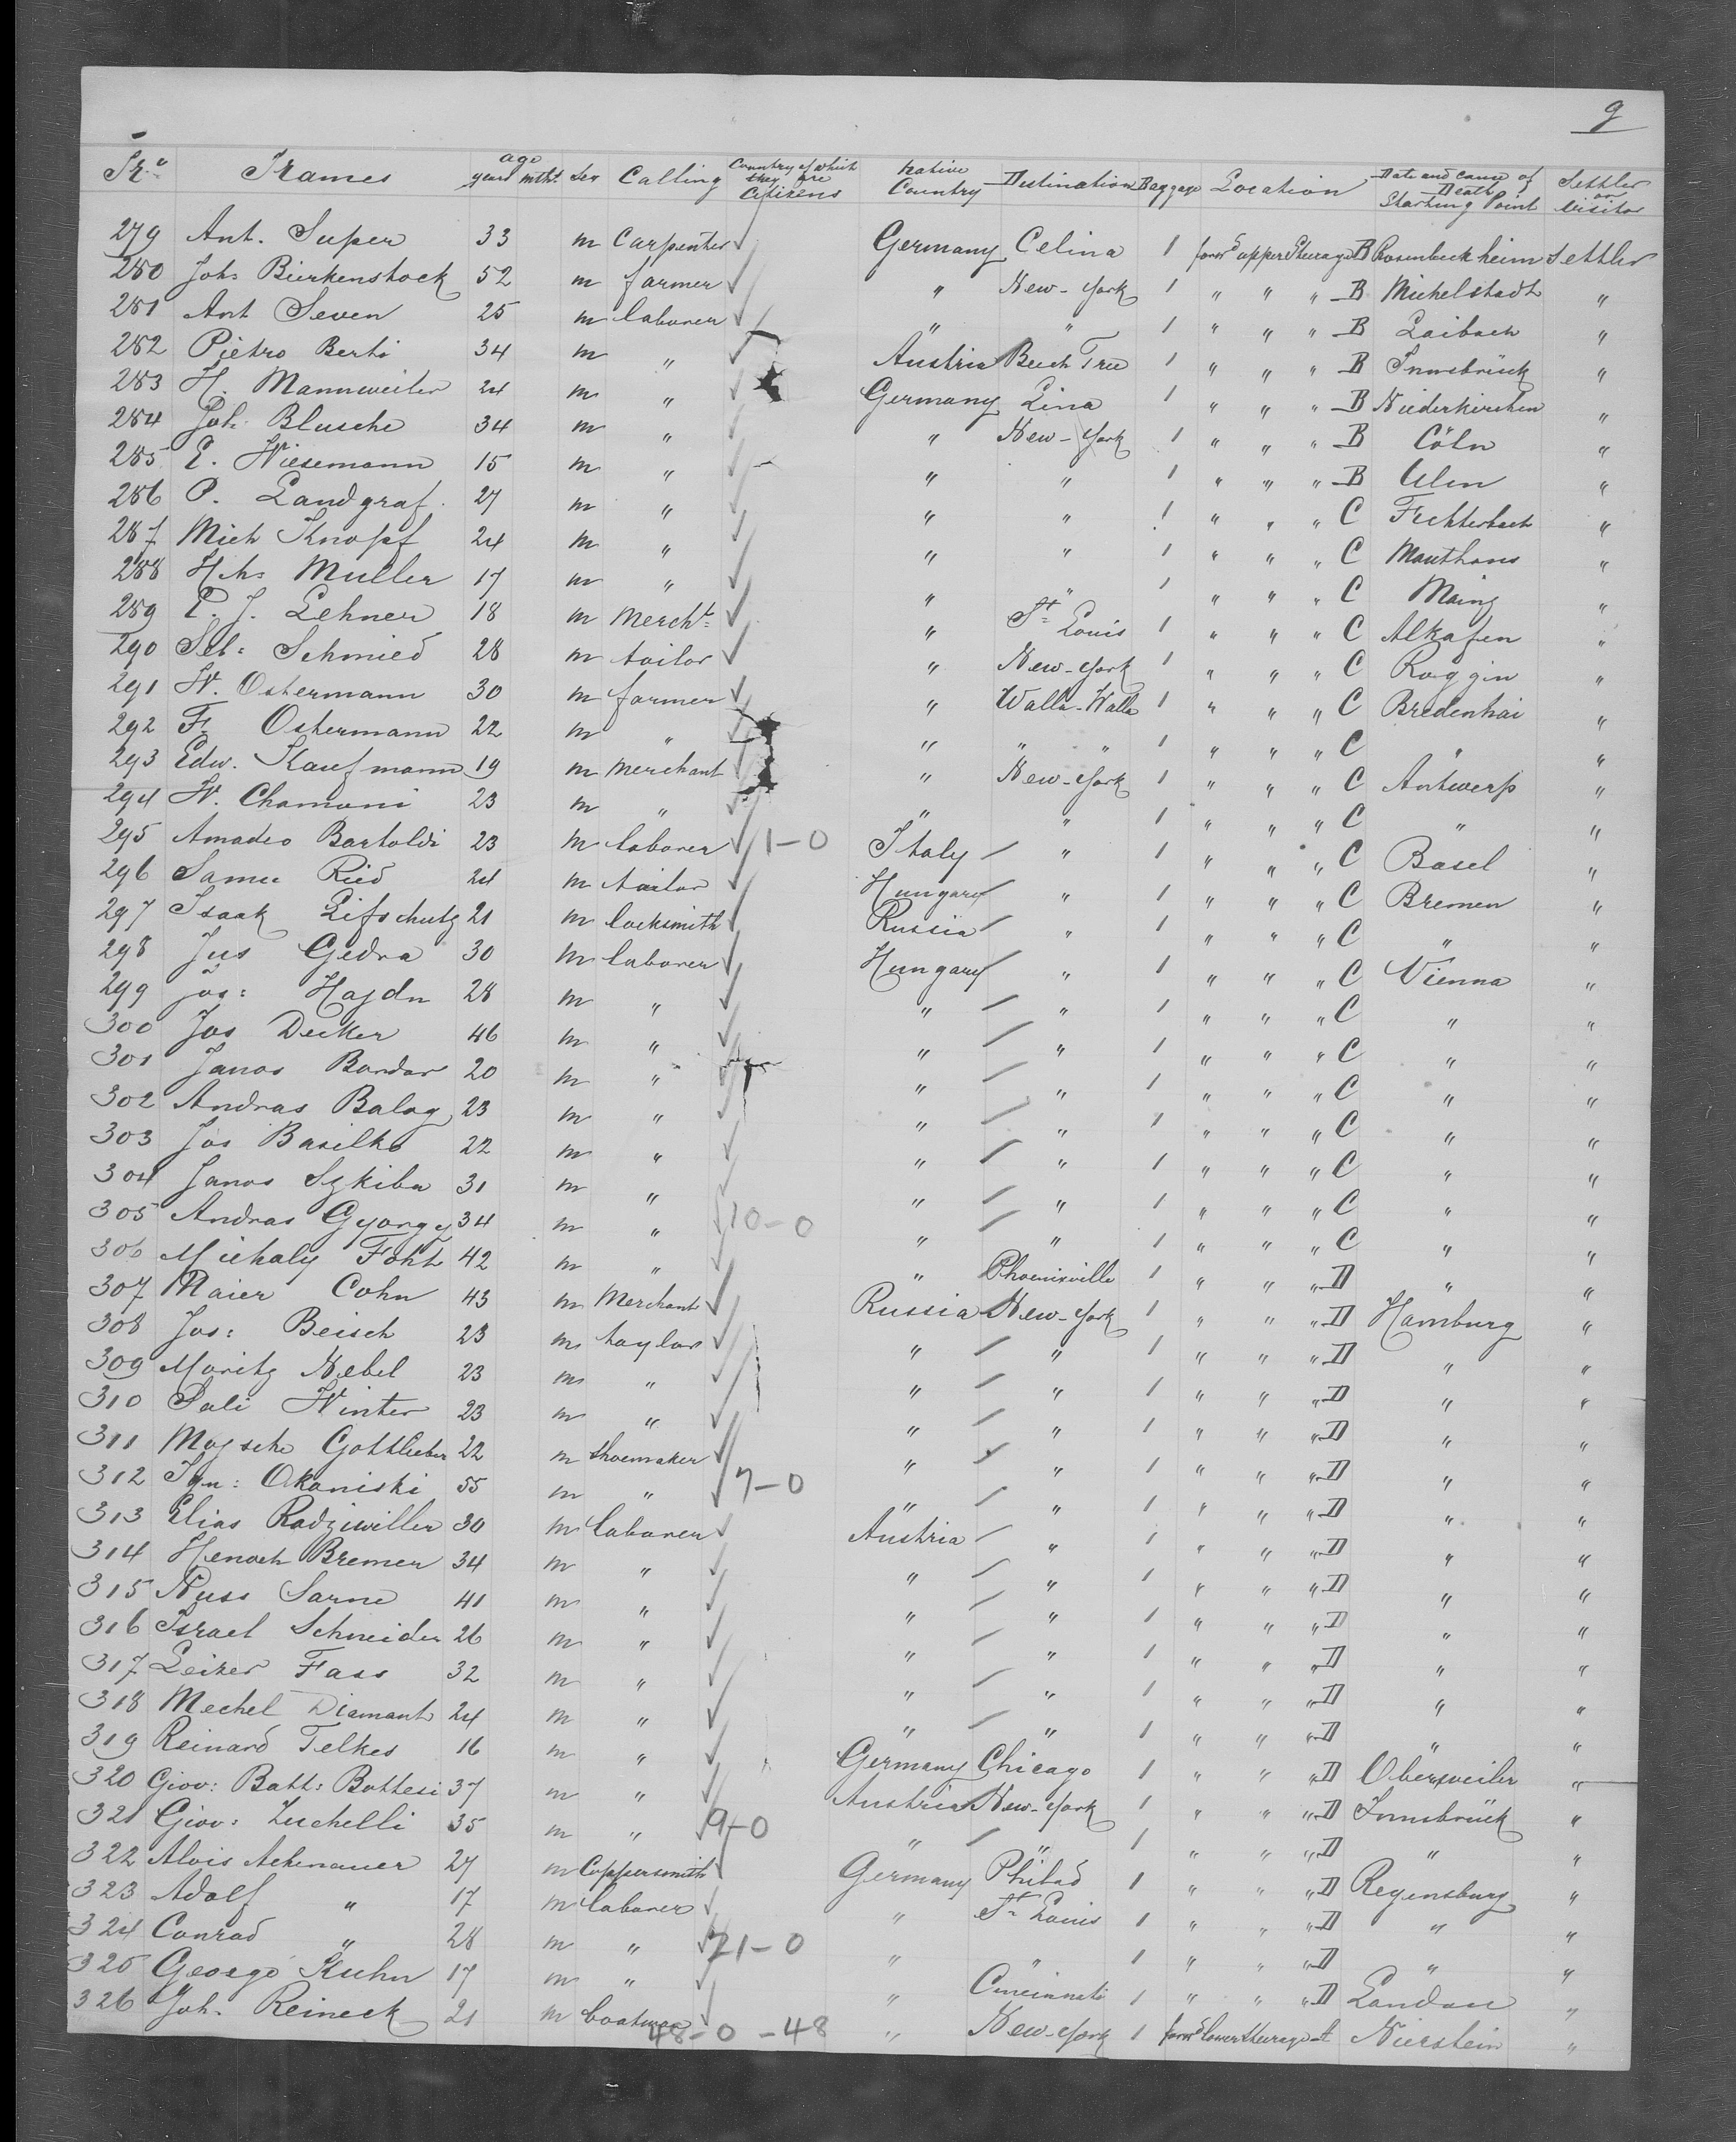 9
No Names age years mths Sex Calling Country of which they are Citizens Native Country Destination Baggage Location Date and cause of Death Starting Point Settler or Visitor
279 Ant. Super 33 m Carpenter Germany Celina 1 forwd upper Steerage B Rosenbeckheim Settler
280 Joh: Bierkenstock 52 m farmer " New-York 1 " " " B Michelstadt "
281 Ant Seven 25 m laborer " " 1 " " " B Laibach "
282 Pietro Berti 34 m " Austria Beech Tree 1 " " " B Innsbrück "
283 H. Mannweiler 24 m " Germany Lina 1 " " " B Niederkirchen "
284 Joh. Blusche 34 m " " New-York 1 " " " B Cöln "
285 E. Wiesemann 15 m " " " 1 " " " B Ulm "
286 P. Landgraf 27 m " " " 1 " " " C "
287 Mich Knopf 24 m " " " 1 " " " C Mauthaus "
288 Hch: Muller 17 m " " " 1 " " " C Mainz "
289 E. J. Lehner 18 m Mercht " St Louis 1 " " " C Alkafen "
290 Seb: Schmied 28 m tailor " New-York 1 " " " C Roggin "
291 W. Ostermann 30 m farmer " Walla-Walla 1 " " " C Bredenhai "
292 F. Ostermann 22 m " " " " 1 " " " C " "
293 Edw. Kaufmann 19 m Merchant " New-York 1 " " " C Antwerp "
294 W. Chamoni 23 m " " " 1 " " " C " "
295 Amadeo Bartoldi 23 m laborer 1-0 Italy " 1 " " " C Basel "
296 Samu Ried 24 m tailor Hungary " 1 " " " C Bremen "
297 Isaak Lifschutz 21 m locksmith Russia " 1 " " " C " "
298 Jus Gedra 30 m laborer Hungary " 1 " " " C Vienna "
299 Jos: Hajdn 28 m " " " 1 " " " C " "
300 Jos Decker 46 m " " " 1 " " " C " "
301 Janos Bondar 20 m " " " 1 " " " C " "
302 Andras Balog 23 m " " " 1 " " " C " "
303 Jos Basilko 22 m " " " 1 " " " C " "
304 Janos Szkiba 31 m " " " 1 " " " C " "
305 Andras Gyorgy 34 m " 10-0 " " 1 " " " C " "
306 Michaly Foht 42 m " " Phoenixville 1 " " " D " "
307 Maier Cohn 43 m Merchant Russia New-York 1 " " " D Hamburg "
308 Jos: Beisch 23 m taylor " " 1 " " " D " "
309 Moritz Nebel 23 m " " " 1 " " " D " "
310 Sali Winter 23 m " " " 1 " " " D " "
311 Mojsche Gottlieber 22 m shoemaker " " 1 " " " D " "
312 Ign: Okoniski 55 m " 7-0 " " 1 " " " D " "
313 Elias Radziwiller 30 m laborer Austria " 1 " " " D " "
314 Henoch Bremer 34 m " " " 1 " " " D " "
315 Nuss Sarne 41 m " " " 1 " " " D " "
316 Israel Schneider 26 m " " " 1 " " " D " "
317 Leizer Fass 32 m " " " 1 " " " D " "
318 Mechel Diamant 24 m " " " 1 " " " D " "
319 Reinard Telkes 16 m " Germany Chicago 1 " " " D Obersweiler "
320 Giov: Batt: Bottesi 37 m " Austria New-York 1 " " " D Innsbrück "
321 Giov: Zuchelli 35 m " 9-0 " " 1 " " " D " "
322 Alois Achenauer 27 m Coppersmith Germany Philad 1 " " " D Regensburg "
323 Adolf " 17 m laborer " St Louis 1 " " " D " "
324 Conrad " 28 m " 21-0 " " 1 " " " D " "
325 George Kuhn 17 m " " Cincinnati 1 " " " D Landau "
326 Joh. Reineck 21 m boatman " New-York 1 forwd lower Steerage A Nierstein "
48-0 -48